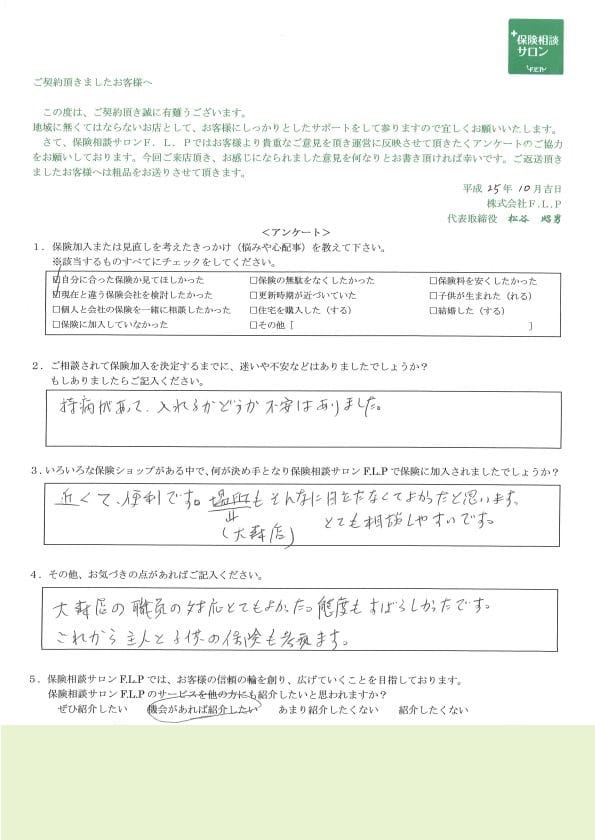 +保険相談
サロン
F.L.P
ご契約頂きましたお客様へ
この度は、ご契約頂き誠に有難うございます。
地域に無くてはならないお店として、お客様にしっかりとしたサポートをして参りますので宜しくお願いいたします。
さて、保険相談サロンF.L.Pではお客様より貴重なご意見を頂き運営に反映させて頂きたくアンケートのご協力
をお願いしております。今回ご来店頂き、お感じになられました意見を何なりとお書き頂ければ幸いです。ご返送頂き
ましたお客様へは粗品をお送りさせて頂きます。
平成 25年 10月吉日
株式会社F.L.P
代表取締役 松谷 昭男
<アンケート>
1．保険加入または見直しを考えたきっかけ（悩みや心配事）を教えて下さい。
※該当するものすべてにチェックをしてください。
☑自分に合った保険か見てほしかった □保険の無駄をなくしたかった □保険料を安くしたかった
☑現在と違う保険会社を検討したかった □更新時期が近づいていた □子供が生まれた（れる）
□個人と会社の保険を一緒に相談したかった □住宅を購入した（する） □結婚した（する）
□保険に加入していなかった □その他 [ ]
2．ご相談されて保険加入を決定するまでに、迷いや不安などはありましたでしょうか？
もしありましたらご記入ください。
持病があって、入れるかどうか不安はありました。
3．いろいろな保険ショップがある中で、何が決め手となり保険相談サロンF.L.Pで保険に加入されましたでしょうか？
近くて、便利です。場所もそんなに目をたなくてよかったと思います。
(大森店) とても相談しやすいです。
4．その他、お気づきの点があればご記入ください。
大森店の職員の対応とてもよかった。態度もすばらしかったです。
これから主人と子供の保険も考えます。
5．保険相談サロンF.L.Pでは、お客様の信頼の輪を創り、広げていくことを目指しております。
保険相談サロンF.L.Pのサービスを他の方にも紹介したいと思われますか？
ぜひ紹介したい 機会があれば紹介したい あまり紹介したくない 紹介したくない